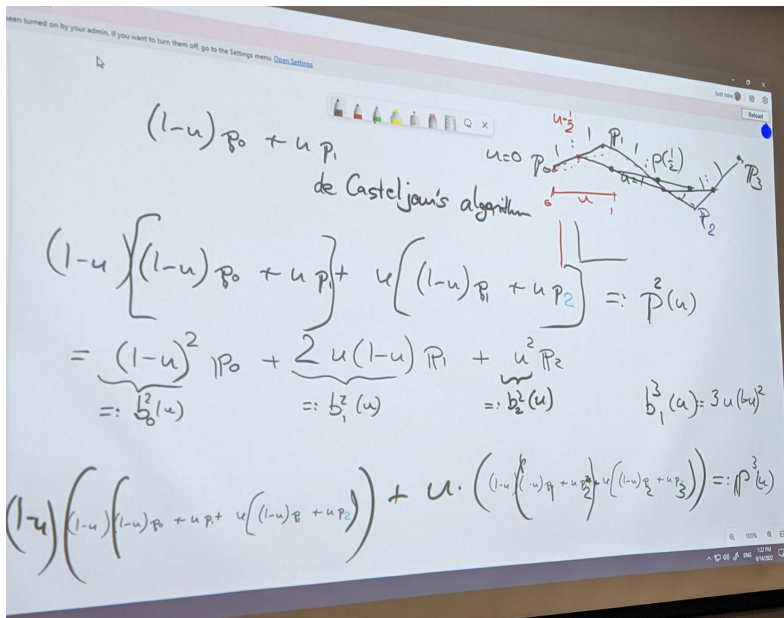 been turned on by your admin. If you want to turn them off, go to the Settings menu. Open Settings
Just now
Reload
(1-u) p₀ + u p₁
de Casteljau's algorithm
u=½
u=0 P₀ 1 : 1 P₁ p(½) P₂ 1 : 1 P₃
u=1
0 u 1
(1-u)[(1-u) p₀ + u p₁] + u[(1-u) p₁ + u p₂] =: p²(u)
= (1-u)² p₀ + 2u(1-u) p₁ + u² p₂
=: b₀²(u) =: b₁²(u) =: b₂²(u) b₁³(u) = 3u(1-u)²
(1-u)((1-u)((1-u) p₀ + u p₁ + u((1-u) p₁ + u p₂)) + u·((1-u)((1-u) p₁ + u p₂) + u((1-u) p₂ + u p₃)) =: p³(u)
100%
ENG 1:22 PM
9/14/2022